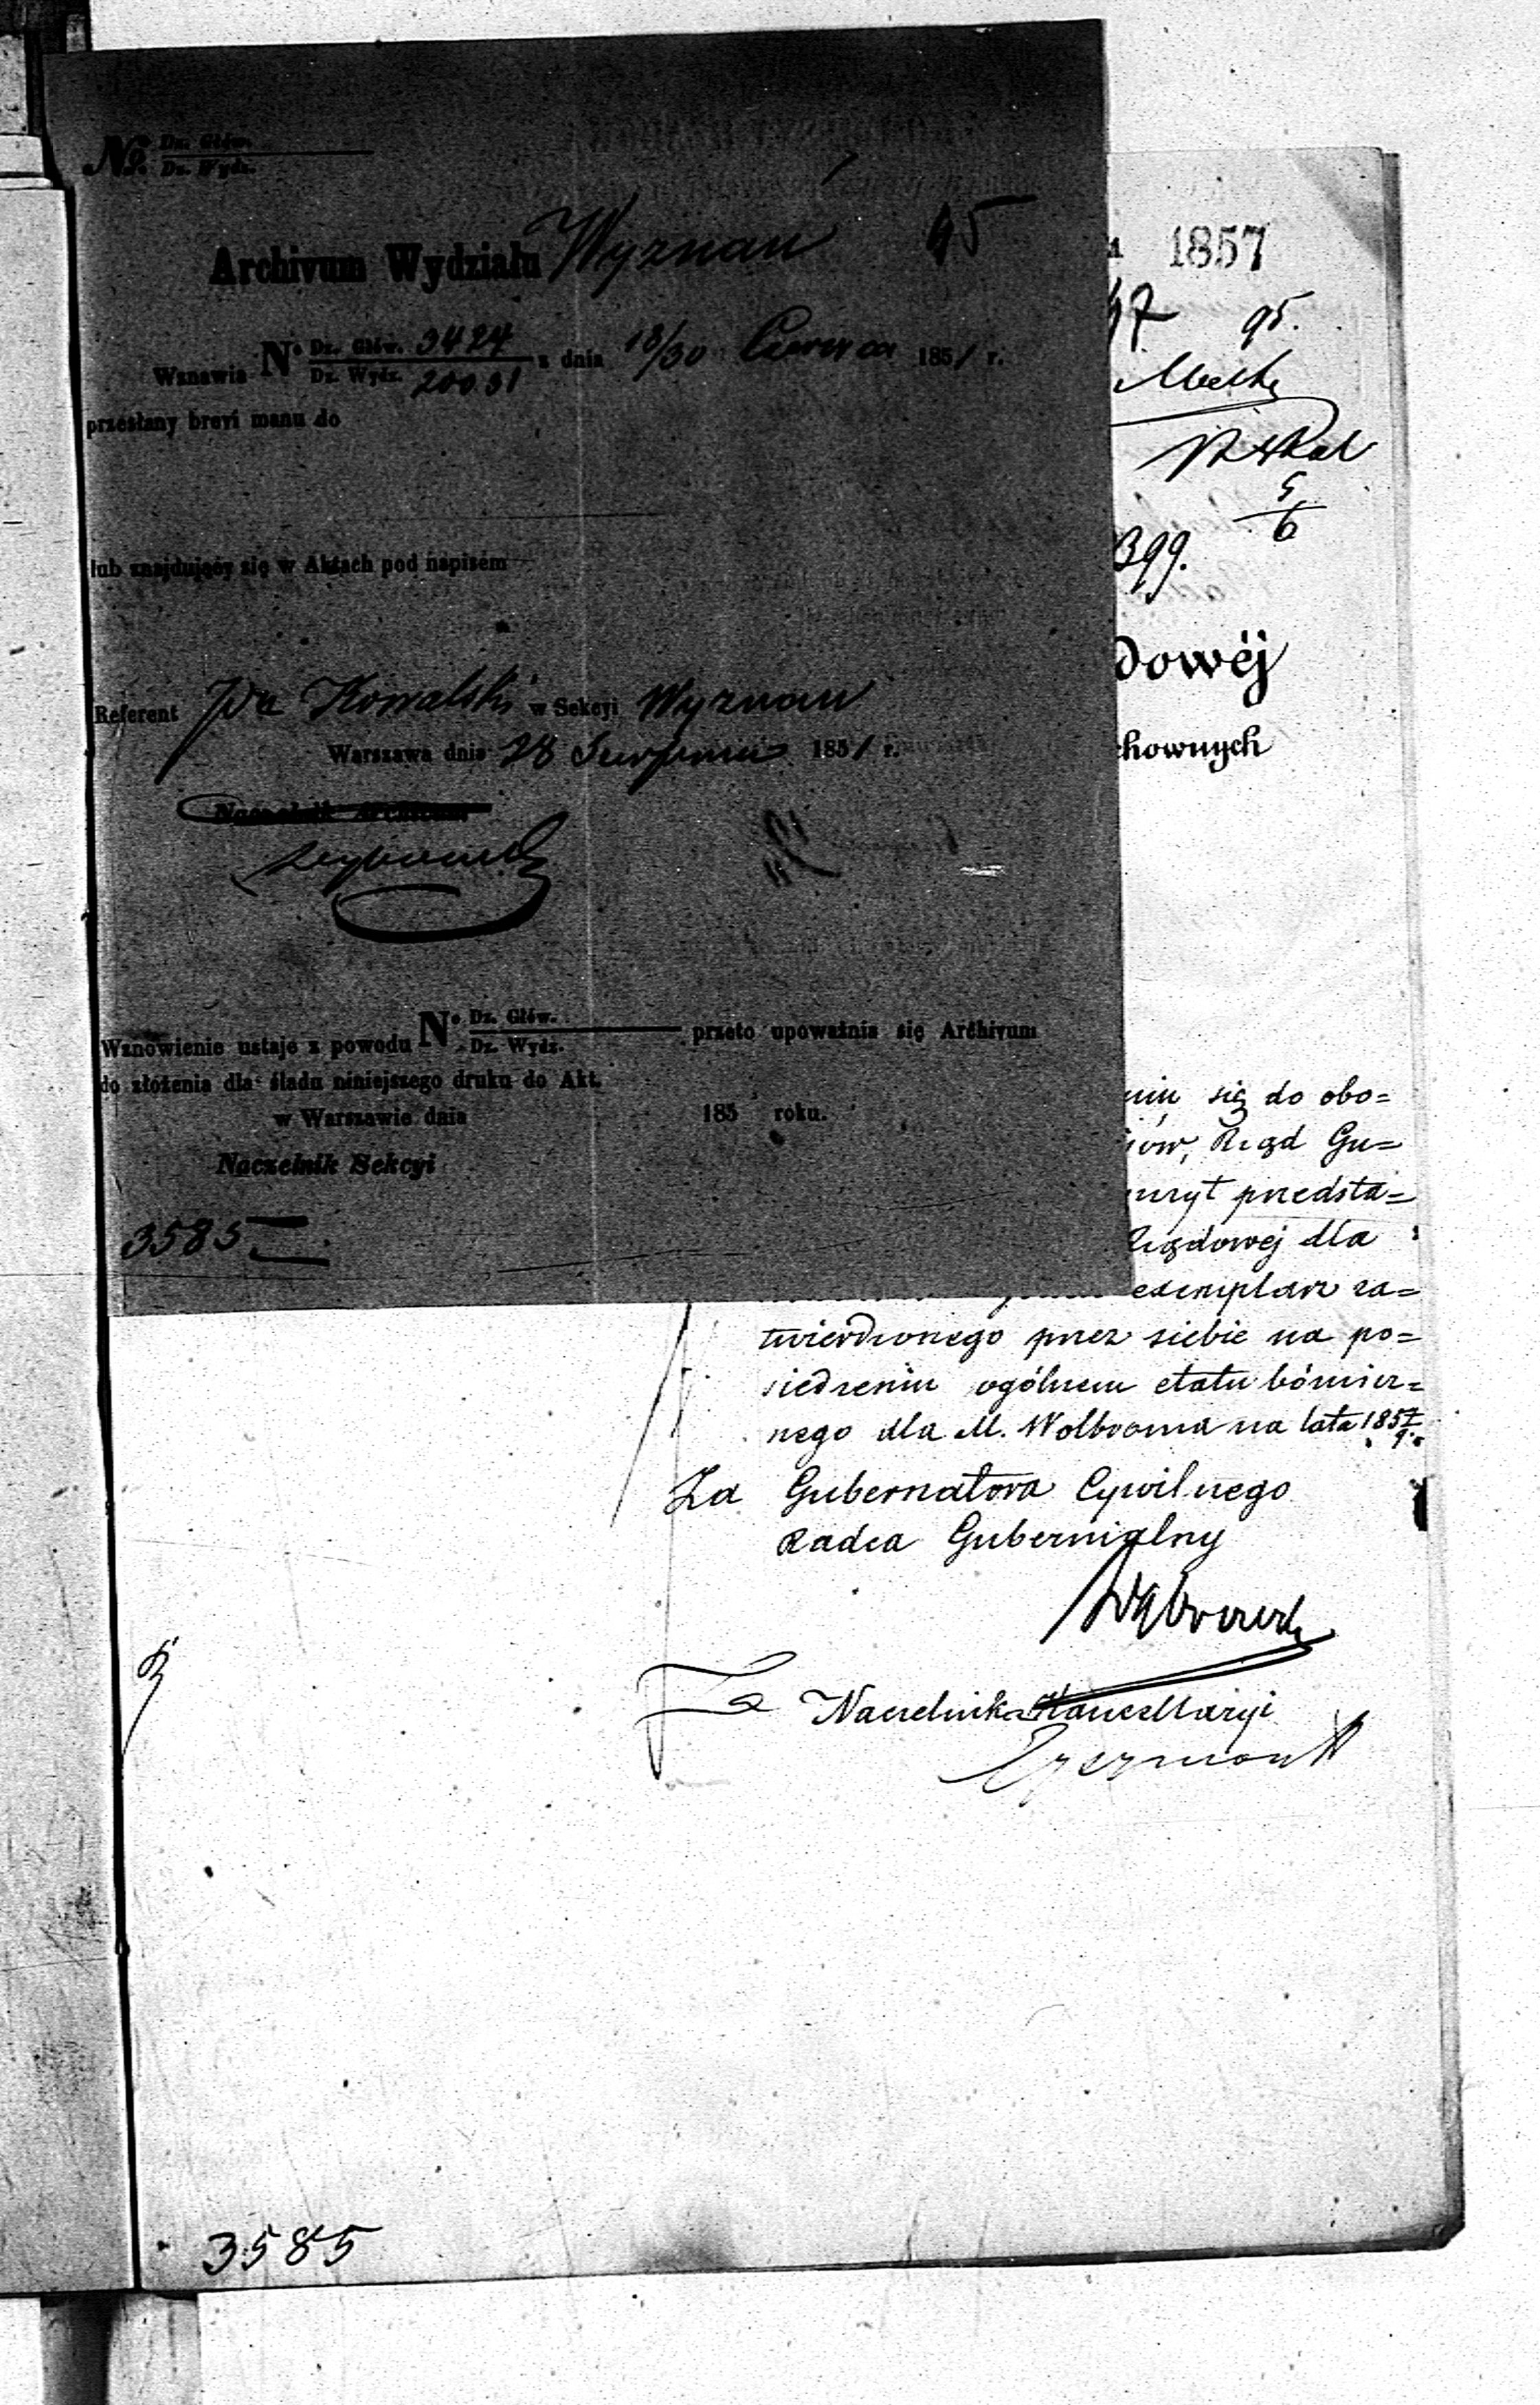 № Dz. Głów.
Dz. Wydz.
Archivum Wydziału Wyznań 45
Wznawia № Dz. Głów. 9424 z dnia 18/30 Czerwca 1851 r.
Dz. Wydz. 20031
przesłany brevi manu do
lub znajdujący się w Aktach pod napisem
Referent JPan Kowalski w Sekcyi Wyznań
Warszawa dnia 28 Sierpnia 1851 r.
Naczelnik Archivum
Wznowienie ustaje z powodu № Dz. Głów. przeto upoważnia się Archivum
Dz. Wydz.
do złożenia dla śladu niniejszego druku do Akt.
w Warszawie dnia 185 roku.
Naczelnik Sekcyi
3585
1857
47 95.
5/6
399.
dowéj
chownych
niu się do obo=
iów, Rząd Gu=
predsta=
Rządowej dla
exemplarz za=
twierdzonego przez siebie na po=
siedzeniu ogólnem etatu bóżnicz=
nego dla M. Wolbroma na lata 1857/9.
Za Gubernatora Cywilnego
Radca Gubernialny
Naczelnik Kancellaryi
3585